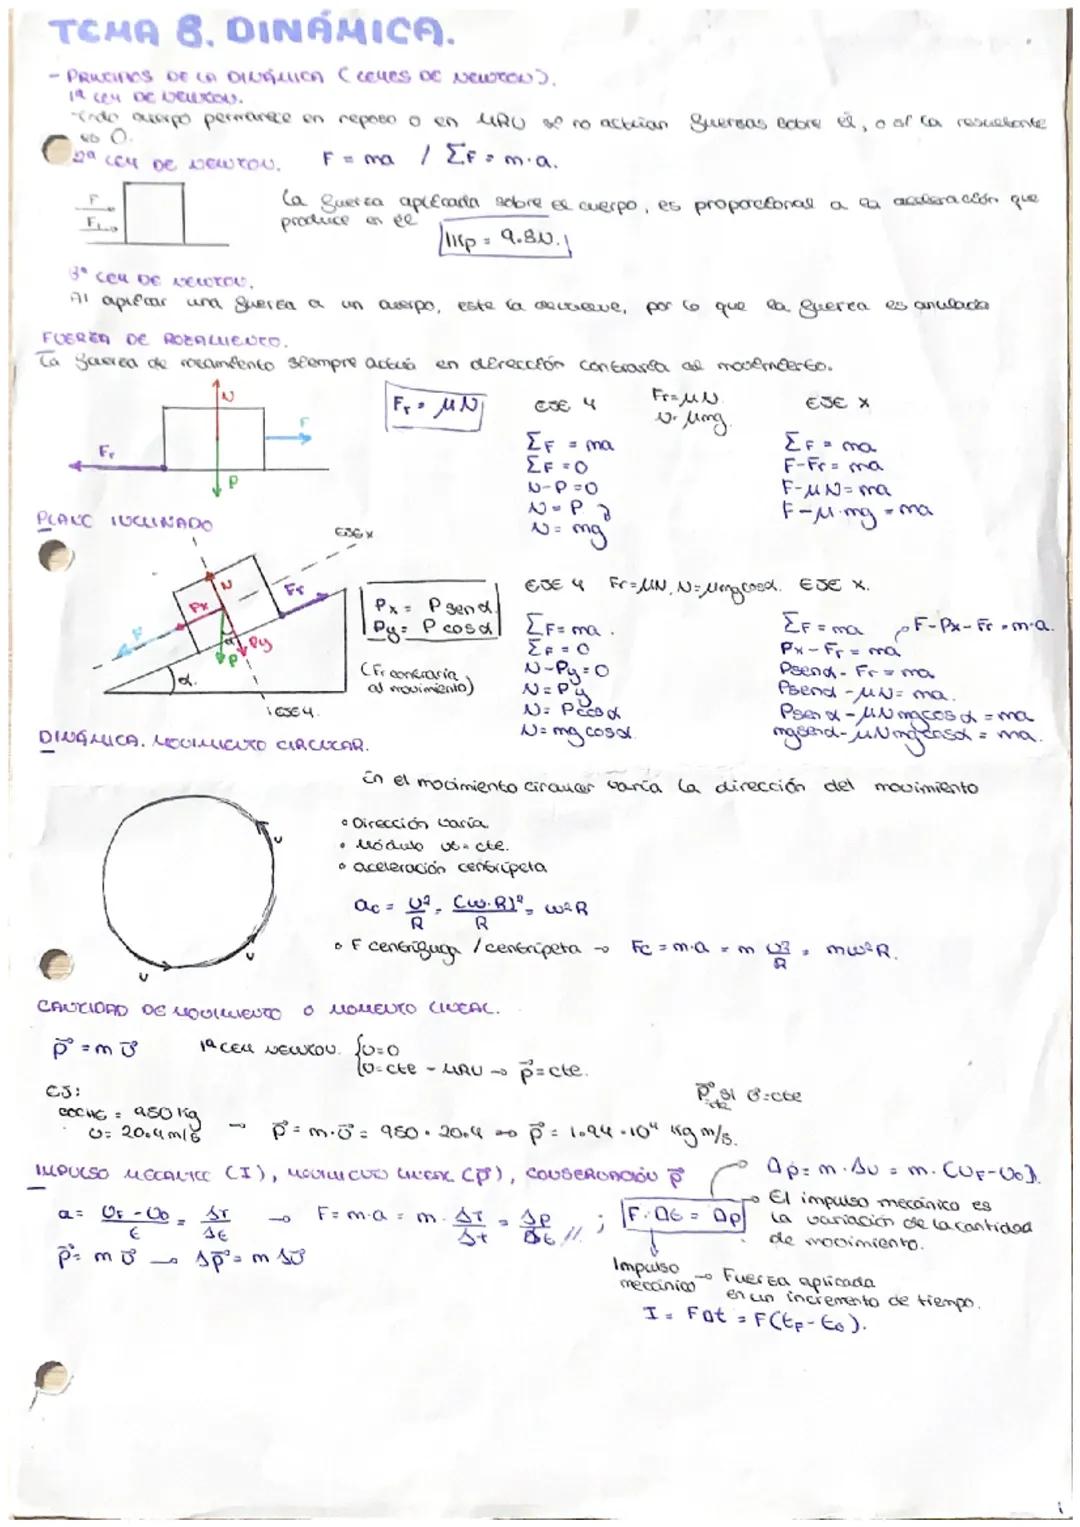 TEMA 8. DINÁMICA.
- PRINCIPIOS DE LA DINÁMICA (LEYES DE NEWTON).
1ª LEY DE NEWTON.
Todo cuerpo permanece en reposo o en MRU si no actúan fuerzas sobre él, o si la resultante
es 0.
2ª LEY DE NEWTON. F = ma / ΣF = m·a.
F
F
La fuerza aplicada sobre el cuerpo, es proporcional a la aceleración que
produce en él
1Kp = 9.8N.
3ª LEY DE NEWTON.
Al aplicar una fuerza a un cuerpo, este la devuelve, por lo que la fuerza es anulada
FUERZA DE ROZAMIENTO.
La fuerza de rozamiento siempre actúa en dirección contraria al movimiento.
N
F
Fr
P
Fr = μN
EJE Y
Fr=μN
N=μmg
ΣF = ma
ΣF = 0
N-P=0
N=P
N= mg
EJE X
ΣF = ma
F-Fr= ma
F-μN=ma
F-μ·mg = ma
PLANO INCLINADO
EJE X
N
Fr
Px
F
α
Py
P
α.
EJE Y.
Px = P senα
Py = P cosα
(Fr contraria
al movimiento)
EJE Y Fr=μN, N=μmgcosα. EJE X.
ΣF= ma.
ΣF = 0
N-Py=0
N=Py
N= Pcosα
N= mg cosα
ΣF = ma → F-Px-Fr = m·a.
Px-Fr = ma
Psenα- Fr = ma
Psenα-μN= ma.
Psenα-μNmgcosα=ma
mgsenα-μNmgcosα = ma.
DINÁMICA. MOVIMIENTO CIRCULAR.
En el movimiento circular varía la dirección del movimiento
v
v
v
• Dirección varía.
• Módulo v = cte.
• aceleración centrípeta
ac = v²/R = (ω·R)²/R = ω²R
• F centrífuga / centrípeta → Fc = m·a = m v²/R = mω²R.
CANTIDAD DE MOVIMIENTO O MOMENTO LINEAL.
p⃗ = m v⃗ 1ª LEY NEWTON. { v=0
v=cte - MRU → p⃗=cte.
EJ:
COCHE = 950 kg
v= 20.4 m/s → p⃗ = m·v⃗ = 950 · 20.4 → p⃗ = 1.94·10⁴ kg m/s.
p⃗ cte si v⃗=cte
IMPULSO MECÁNICO (I), MOVIMIENTO LINEAL (p⃗), CONSERVACIÓN p⃗
Δp= m·Δv = m·(vF-v0).
a= (vf-v0)/t = Δv/Δt → F=m·a = m·Δv/Δt = Δp/Δt // ; F·Δt = Δp
→ El impulso mecánico es
la variación de la cantidad
de movimiento.
p⃗= m v⃗ → Δp⃗= m Δv⃗
Impulso
mecánico → Fuerza aplicada
en un incremento de tiempo.
I = FΔt = F(tF-t0).